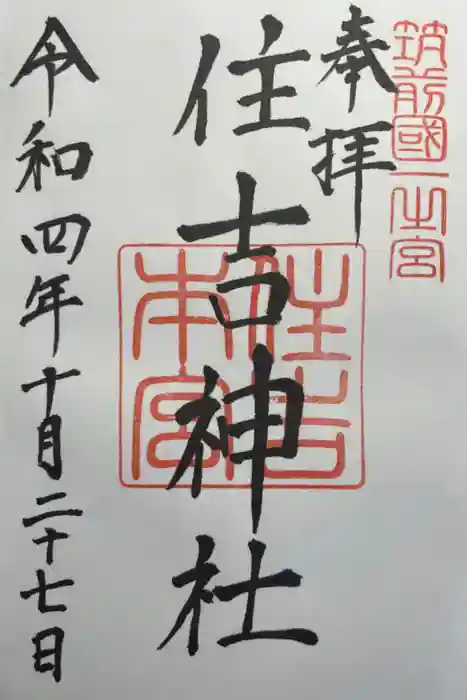 筑前國一之宮
奉拝
住吉神社
住吉本宮
令和四年十月二十七日